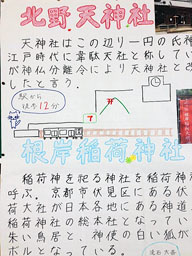 北野天神社
天神社はこの辺り一円の氏神
江戸時代に韋駄天社と称してい
が神仏分離令により天神社と改
しと言う。
駅から
徒歩12分
根岸稲荷神社
稲荷神を祀る神社を稲荷神
呼ぶ。京都市伏見区にある伏
荷大社が日本各地にある神道
稲荷神社の総本社となってい
朱い鳥居と、神使の白い狐が
ボルとなっている。